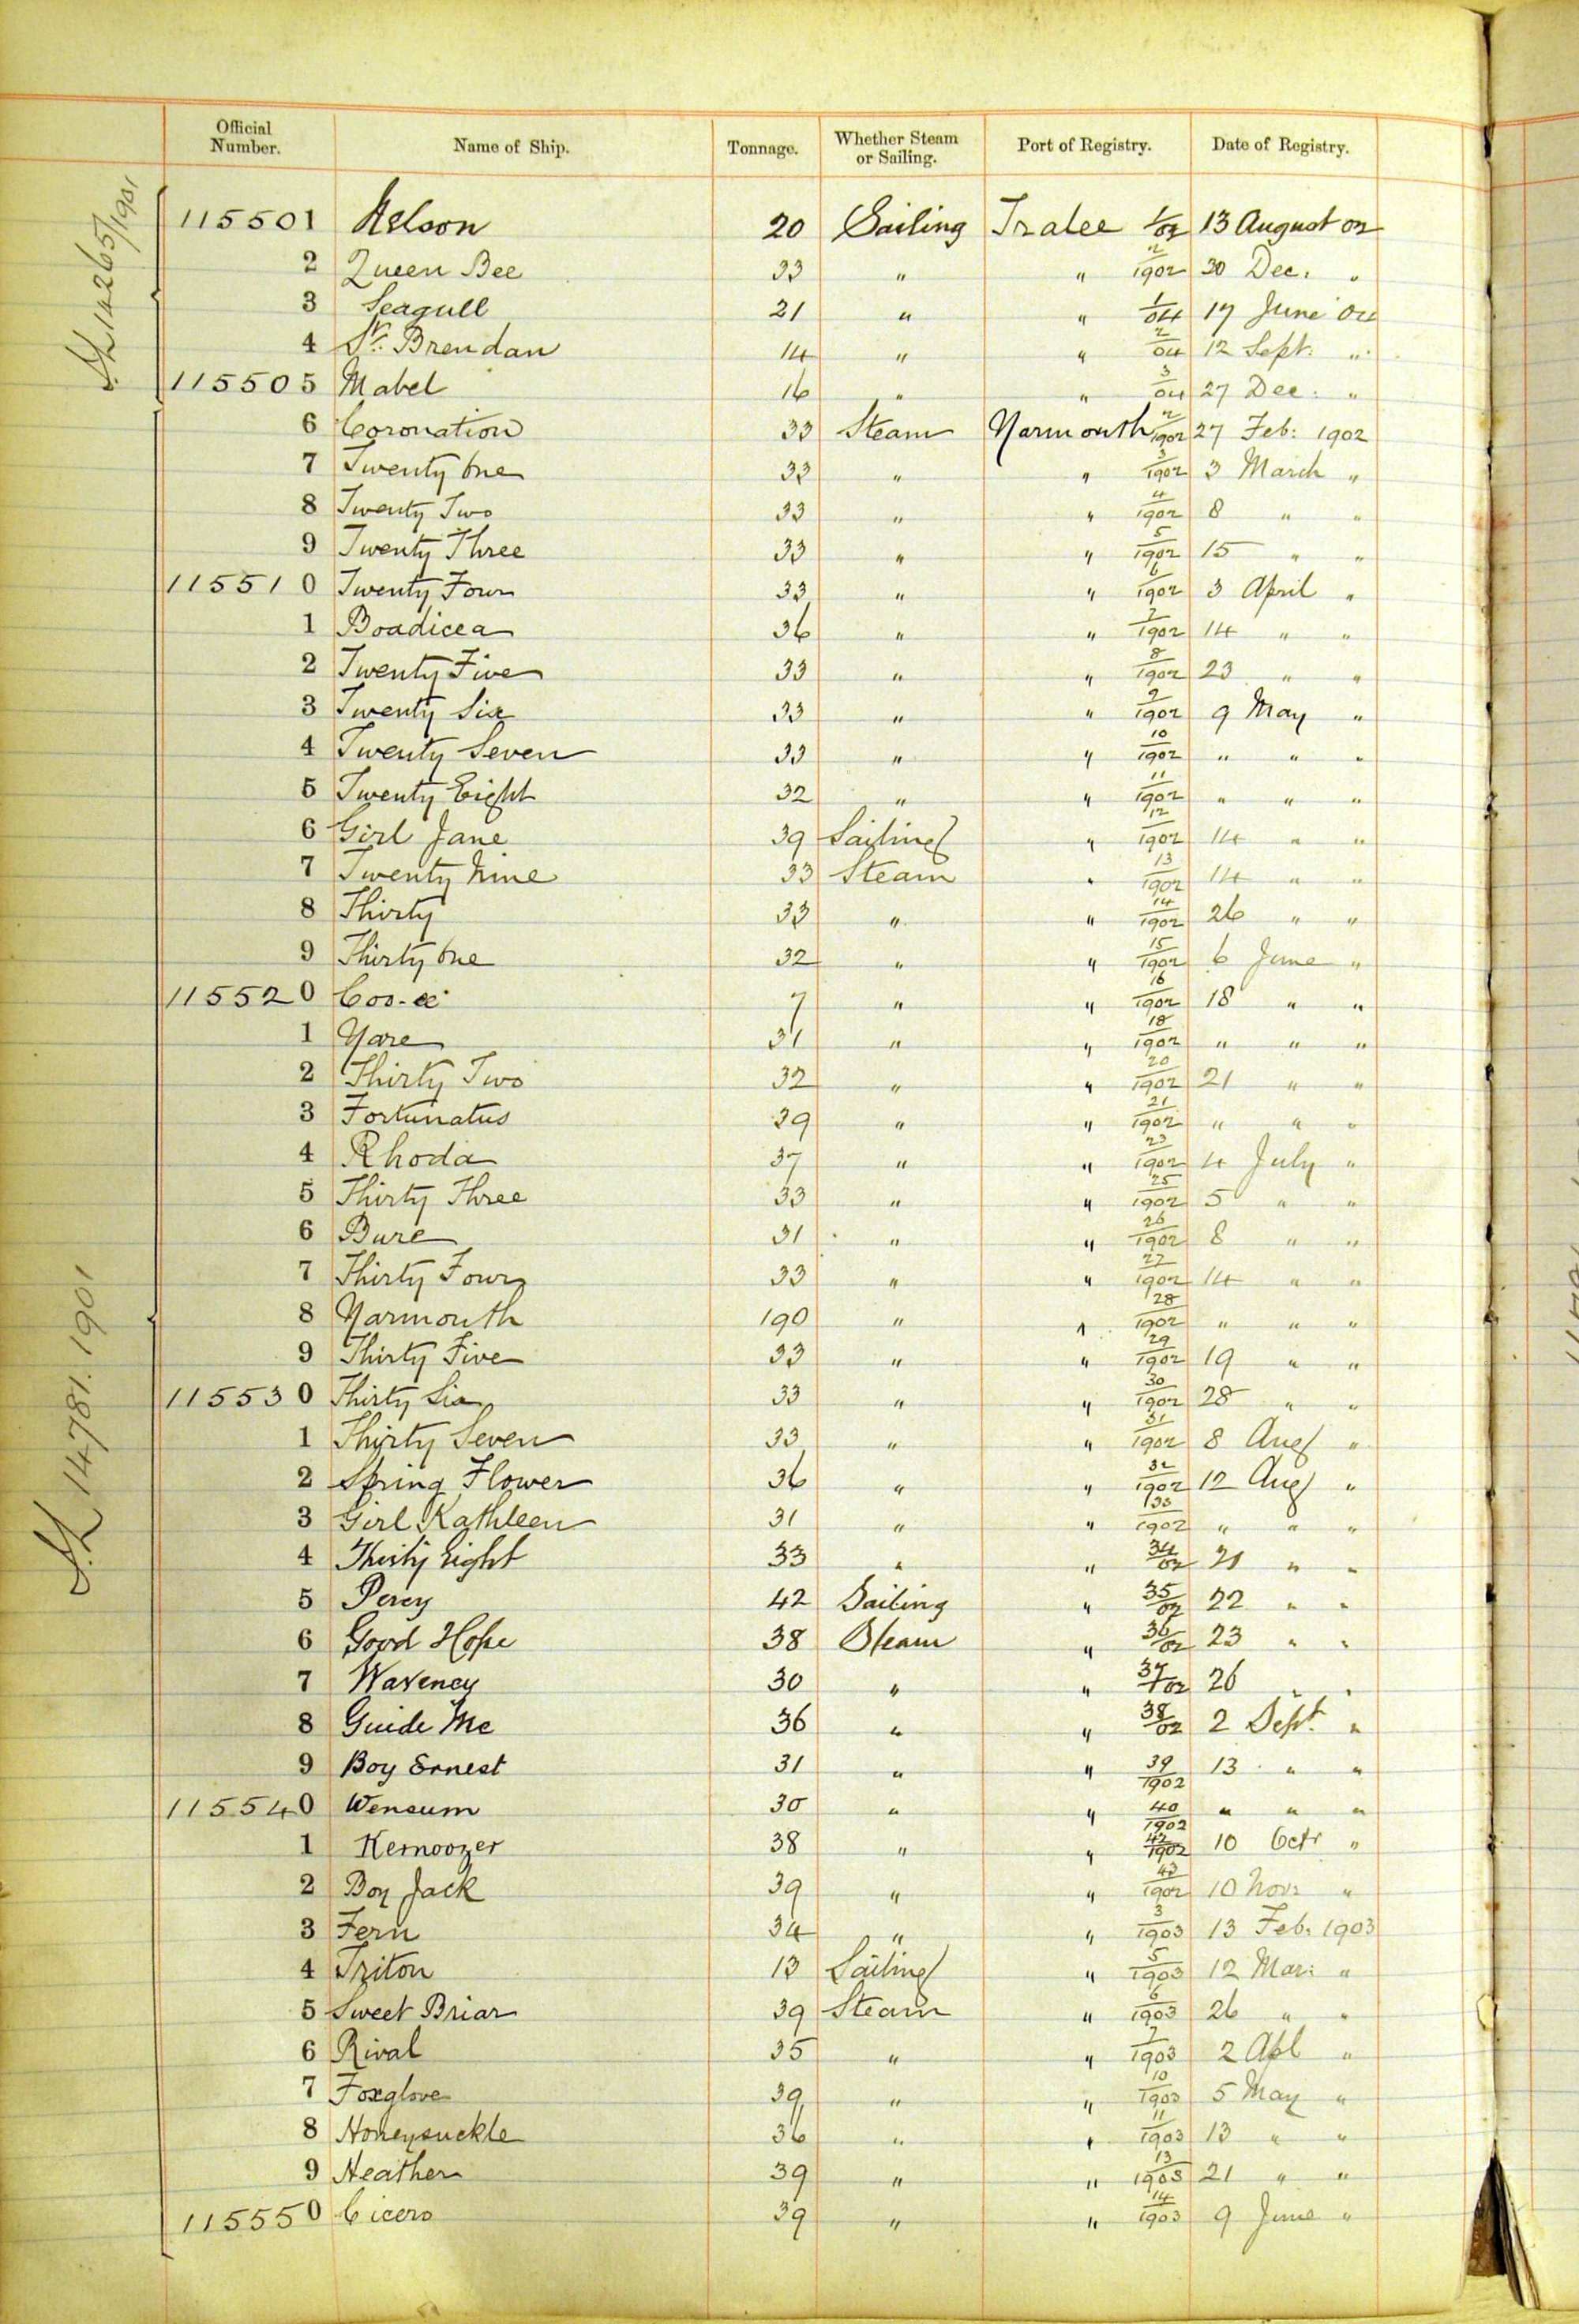 Official Number. Name of Ship. Tonnage. Whether Steam or Sailing. Port of Registry. Date of Registry.
115501 Nelson 20 Sailing Tralee 1/02 13 August 02
2 Queen Bee 33 " " 2/1902 30 Dec: "
3 Seagull 21 " " 1/04 17 June 04
4 St. Brendan 14 " " 2/04 12 Sept: "
115505 Mabel 16 " " 3/04 27 Dec: "
6 Coronation 33 Steam Yarmouth 2/1902 27 Feb: 1902
7 Twenty One 33 " " 3/1902 3 March "
8 Twenty Two 33 " " 4/1902 8 " "
9 Twenty Three 33 " " 5/1902 15 " "
115510 Twenty Four 33 " " 6/1902 3 April "
1 Boadicea 36 " " 7/1902 14 " "
2 Twenty Five 33 " " 8/1902 23 " "
3 Twenty Six 33 " " 9/1902 9 May "
4 Twenty Seven 33 " " 10/1902 " " "
5 Twenty Eight 32 " " 11/1902 " " "
6 Girl Jane 39 Sailing " 12/1902 14 " "
7 Twenty Nine 33 Steam " 13/1902 14 " "
8 Thirty 33 " " 14/1902 26 " "
9 Thirty One 32 " " 15/1902 6 June "
115520 Coo-ee 7 " " 16/1902 18 " "
1 Yare 31 " " 18/1902 " " "
2 Thirty Two 32 " " 20/1902 21 " "
3 Fortunatus 39 " " 21/1902 " " "
4 Rhoda 37 " " 23/1902 4 July "
5 Thirty Three 33 " " 25/1902 5 " "
6 Bure 31 " " 26/1902 8 " "
7 Thirty Four 33 " " 27/1902 14 " "
8 Yarmouth 190 " " 28/1902 " " "
9 Thirty Five 33 " " 29/1902 19 " "
115530 Thirty Six 33 " " 30/1902 28 " "
1 Thirty Seven 33 " " 31/1902 8 Aug "
2 Spring Flower 36 " " 32/1902 12 Aug "
3 Girl Kathleen 31 " " 33/1902 " " "
4 Thirty Eight 33 " " 34/02 21 " "
5 Percy 42 Sailing " 35/02 22 " "
6 Good Hope 38 Steam " 36/02 23 " "
7 Waveney 30 " " 37/02 26 " "
8 Guide Me 36 " " 38/02 2 Sept. "
9 Boy Ernest 31 " " 39/1902 13 " "
115540 Wensum 30 " " 40/1902 " " "
1 Kernoozer 38 " " 42/1902 10 Octr "
2 Boy Jack 39 " " 43/1902 10 Novr "
3 Fern 34 " " 3/1903 13 Feb: 1903
4 Triton 13 Sailing " 5/1903 12 Mar: "
5 Sweet Briar 39 Steam " 6/1903 26 " "
6 Rival 35 " " 7/1903 2 Apl "
7 Foxglove 39 " " 10/1903 5 May "
8 Honeysuckle 36 " " 11/1903 13 " "
9 Heather 39 " " 13/1903 21 " "
115550 Cicero 39 " " 14/1903 9 June "
14265/1901
14781.1901